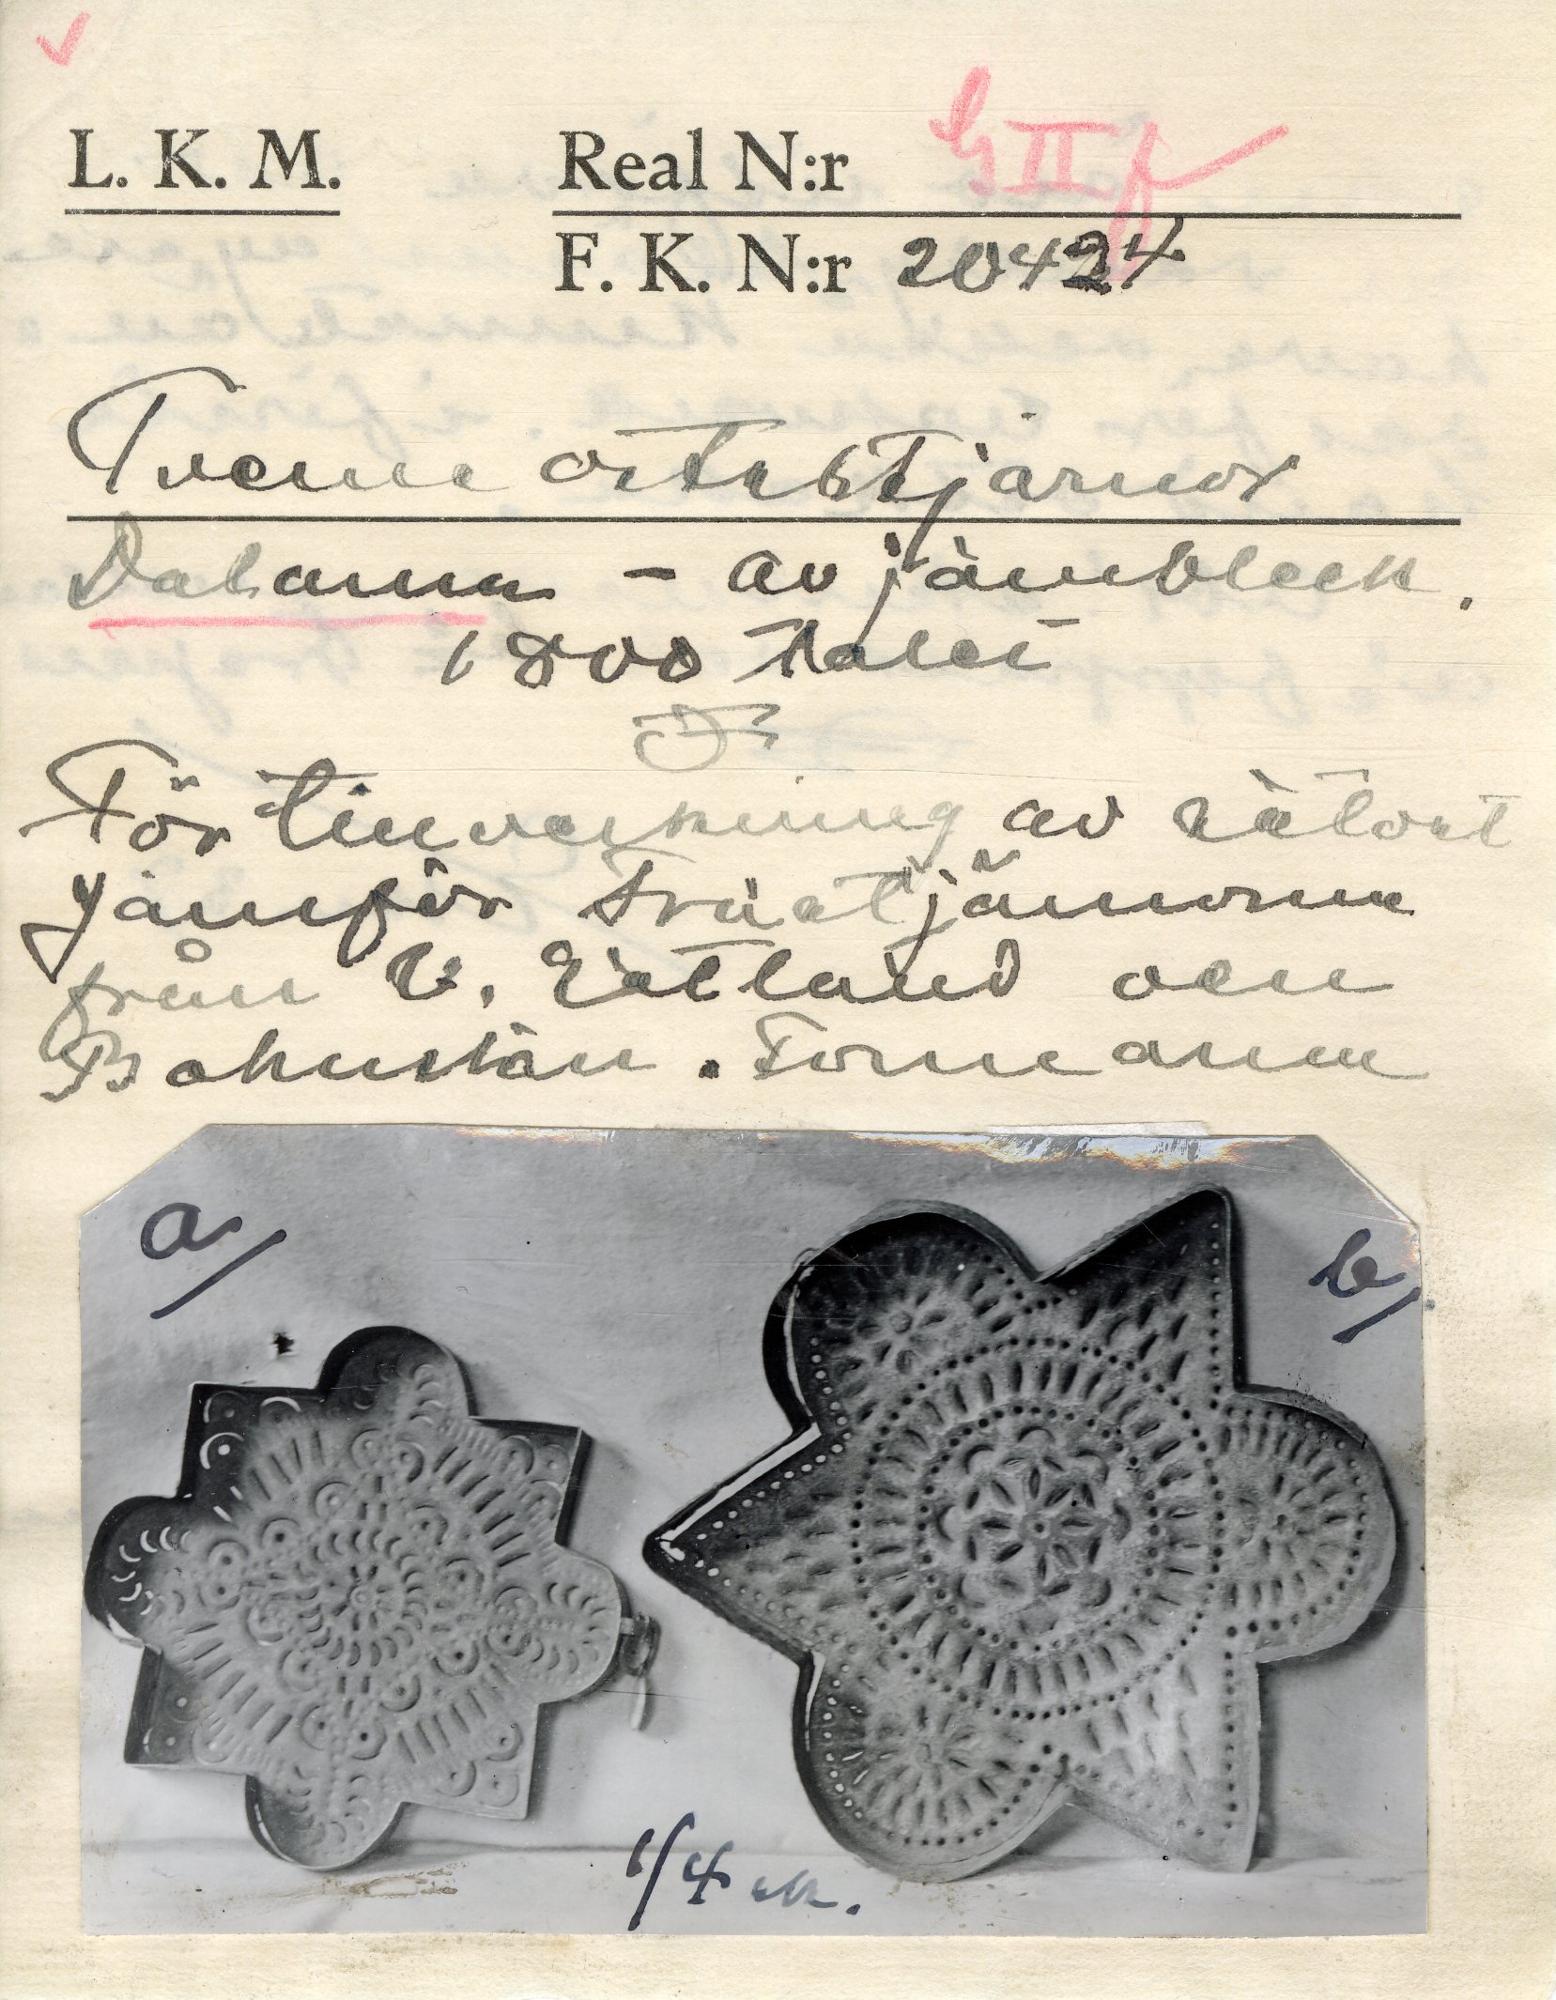 L. K. M.
Real N:r G II f
F. K. N:r 20424
Tvenne ostestjärnor
Dalarna - av järnbleck.
1800 talet
För tillverkning av sötost
Jämför trästjärnorna
från V. Götland och
Bohuslän. Formarna
a/
b/
1/4 sk.